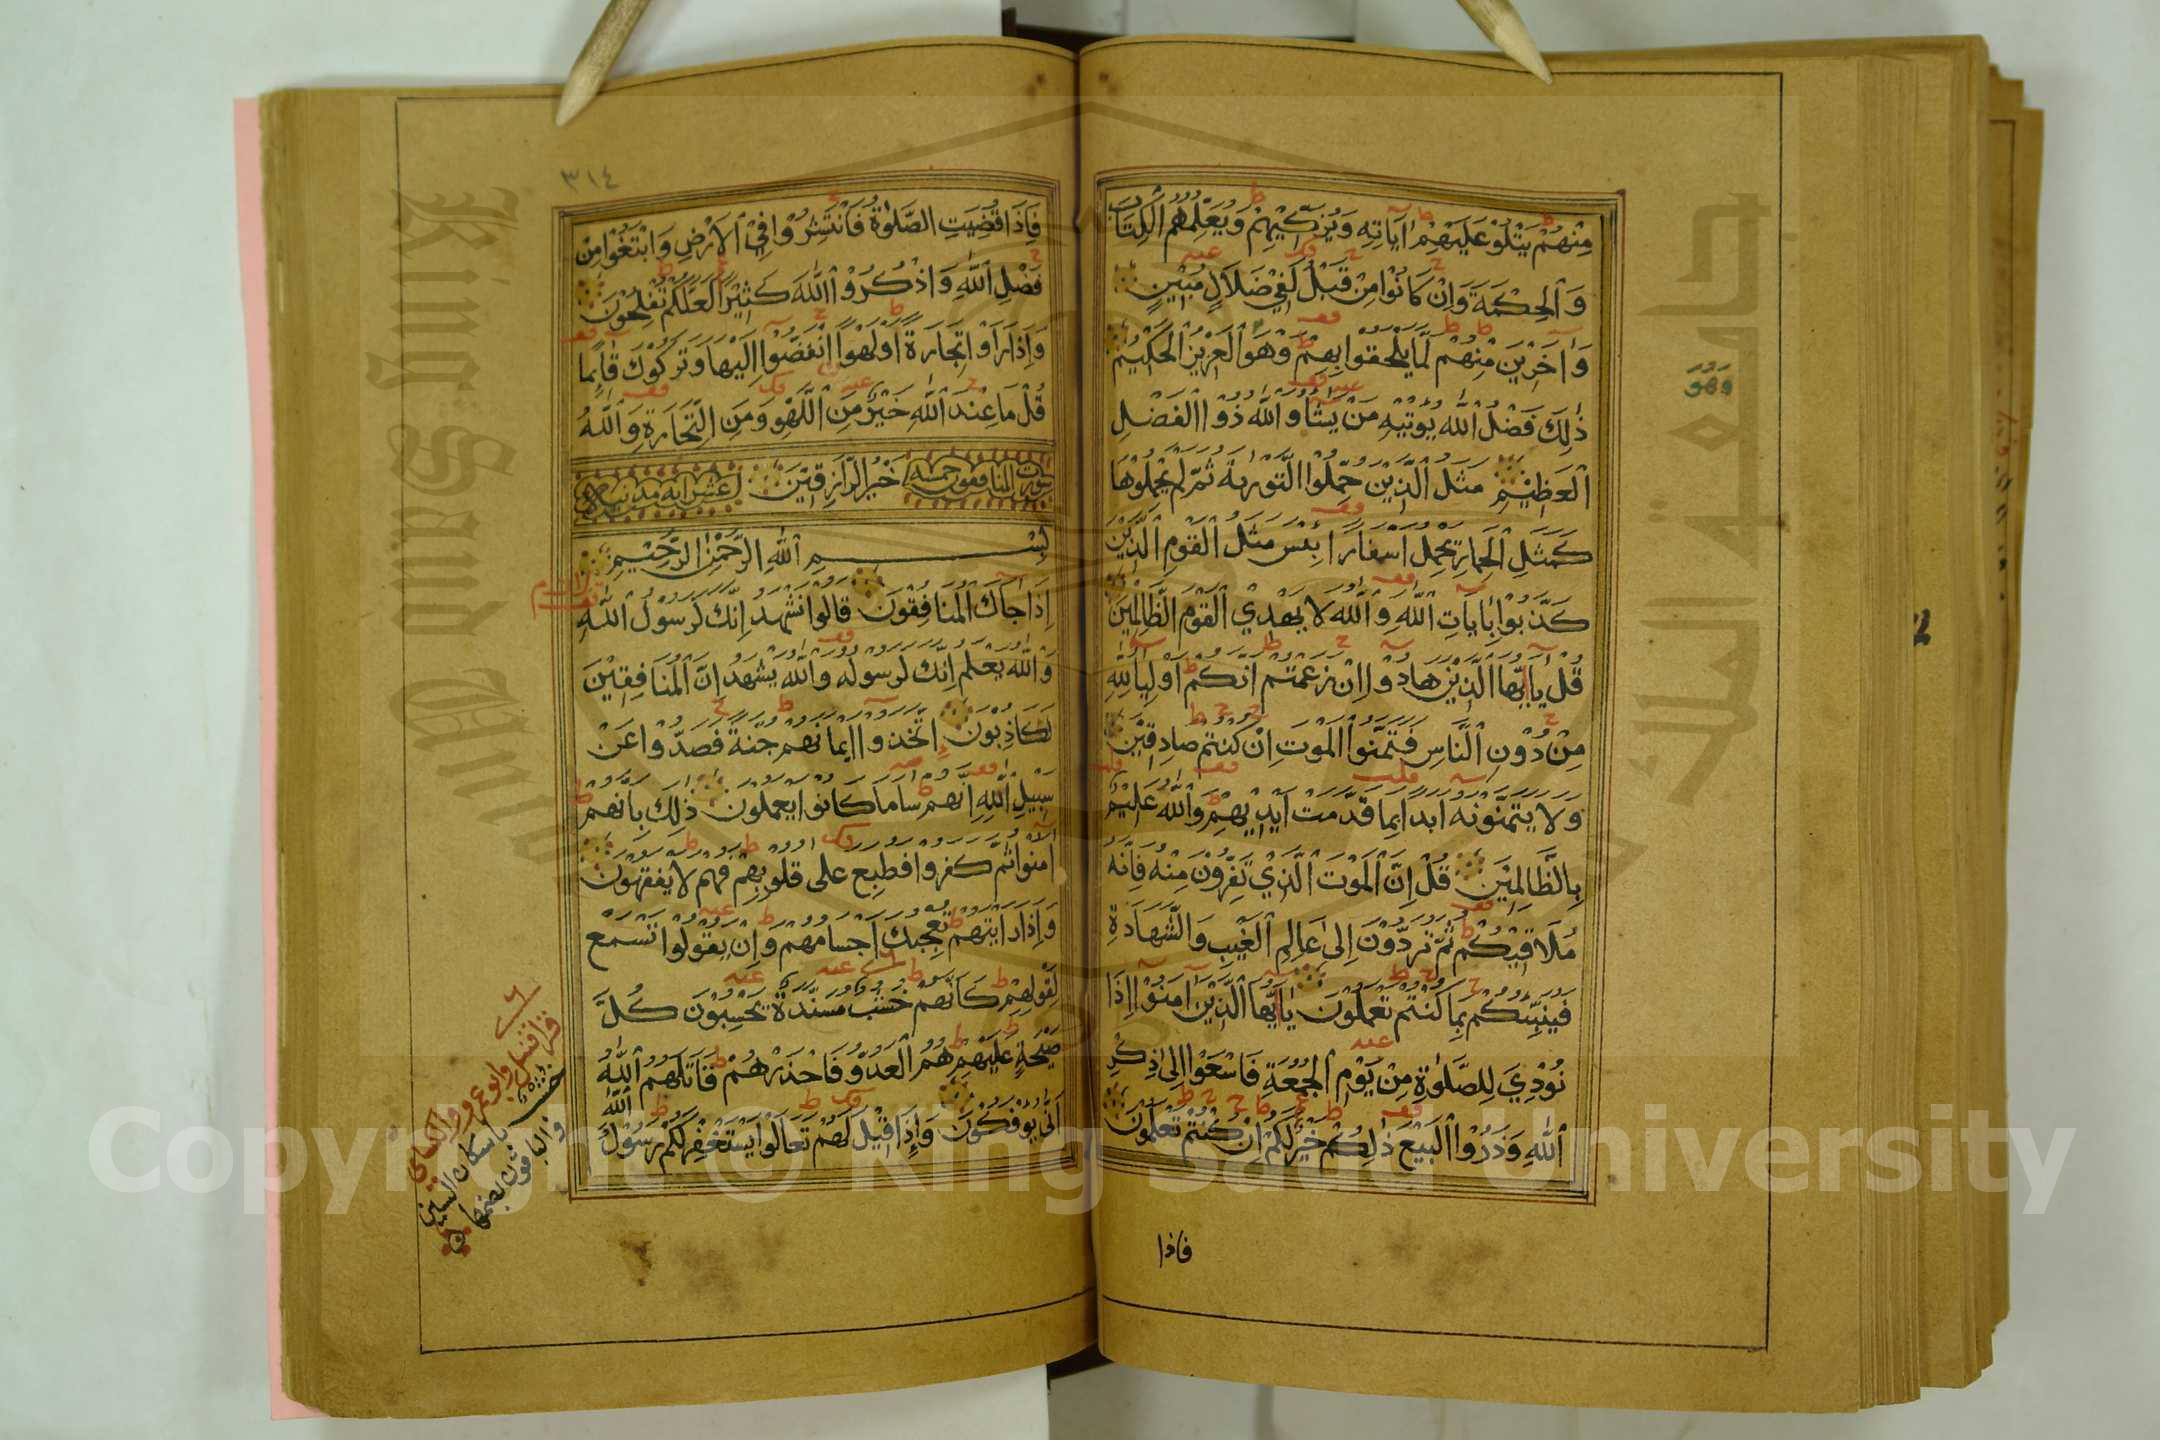 مِنْهُمْ يَتْلُوْ عَلَيْهِمْ اٰيَاتِهٖ وَيُزَكِّيْهِمْ وَيُعَلِّمُهُمُ الْكِتَابَ
وَالْحِكْمَةَ وَاِنْ كَانُوْا مِنْ قَبْلُ لَفِيْ ضَلَالٍ مُبِيْنٍ
وَاٰخَرِيْنَ مِنْهُمْ لَمَّا يَلْحَقُوْا بِهِمْ وَهُوَ الْعَزِيْزُ الْحَكِيْمُ
ذٰلِكَ فَضْلُ اللّٰهِ يُؤْتِيْهِ مَنْ يَشَآءُ وَاللّٰهُ ذُو الْفَضْلِ
الْعَظِيْمِ مَثَلُ الَّذِيْنَ حُمِّلُوا التَّوْرٰىةَ ثُمَّ لَمْ يَحْمِلُوْهَا
كَمَثَلِ الْحِمَارِ يَحْمِلُ اَسْفَارًا بِئْسَ مَثَلُ الْقَوْمِ الَّذِيْنَ
كَذَّبُوْا بِاٰيَاتِ اللّٰهِ وَاللّٰهُ لَا يَهْدِي الْقَوْمَ الظَّالِمِيْنَ
قُلْ يَا اَيُّهَا الَّذِيْنَ هَادُوْا اِنْ زَعَمْتُمْ اَنَّكُمْ اَوْلِيَآءُ لِلّٰهِ
مِنْ دُوْنِ النَّاسِ فَتَمَنَّوُا الْمَوْتَ اِنْ كُنْتُمْ صَادِقِيْنَ
وَلَا يَتَمَنَّوْنَهٗ اَبَدًا بِمَا قَدَّمَتْ اَيْدِيْهِمْ وَاللّٰهُ عَلِيْمٌ
بِالظَّالِمِيْنَ قُلْ اِنَّ الْمَوْتَ الَّذِيْ تَفِرُّوْنَ مِنْهُ فَاِنَّهٗ
مُلَاقِيْكُمْ ثُمَّ تُرَدُّوْنَ اِلٰى عَالِمِ الْغَيْبِ وَالشَّهَادَةِ
فَيُنَبِّئُكُمْ بِمَا كُنْتُمْ تَعْمَلُوْنَ يٰا اَيُّهَا الَّذِيْنَ اٰمَنُوْٓا اِذَا
نُوْدِيَ لِلصَّلٰوةِ مِنْ يَوْمِ الْجُمُعَةِ فَاسْعَوْا اِلٰى ذِكْرِ
اللّٰهِ وَذَرُوا الْبَيْعَ ذٰلِكُمْ خَيْرٌ لَكُمْ اِنْ كُنْتُمْ تَعْلَمُوْنَ
فاذا
وَهُوَ
٣١٤
فَاِذَا قُضِيَتِ الصَّلٰوةُ فَانْتَشِرُوْا فِي الْاَرْضِ وَابْتَغُوْا مِنْ
فَضْلِ اللّٰهِ وَاذْكُرُوا اللّٰهَ كَثِيْرًا لَعَلَّكُمْ تُفْلِحُوْنَ
وَاِذَا رَاَوْا تِجَارَةً اَوْ لَهْوًا انْفَضُّوْا اِلَيْهَا وَتَرَكُوْكَ قَآئِمًا
قُلْ مَا عِنْدَ اللّٰهِ خَيْرٌ مِنَ اللَّهْوِ وَمِنَ التِّجَارَةِ وَاللّٰهُ
سورت المنافقون خمسه خَيْرُ الرَّازِقِيْنَ عشر ايه مدنية
بِسْمِ اللّٰهِ الرَّحْمٰنِ الرَّحِيْمِ
اِذَا جَآءَكَ الْمُنَافِقُوْنَ قَالُوْا نَشْهَدُ اِنَّكَ لَرَسُوْلُ اللّٰهِ
وَاللّٰهُ يَعْلَمُ اِنَّكَ لَرَسُوْلُهٗ وَاللّٰهُ يَشْهَدُ اِنَّ الْمُنَافِقِيْنَ
لَكَاذِبُوْنَ اتَّخَذُوْا اَيْمَانَهُمْ جُنَّةً فَصَدُّوْا عَنْ
سَبِيْلِ اللّٰهِ اِنَّهُمْ سَآءَ مَا كَانُوْا يَعْمَلُوْنَ ذٰلِكَ بِاَنَّهُمْ
اٰمَنُوْا ثُمَّ كَفَرُوْا فَطُبِعَ عَلٰى قُلُوْبِهِمْ فَهُمْ لَا يَفْقَهُوْنَ
وَاِذَا رَاَيْتَهُمْ تُعْجِبُكَ اَجْسَامُهُمْ وَاِنْ يَقُوْلُوْا تَسْمَعْ
لِقَوْلِهِمْ كَاَنَّهُمْ خُشُبٌ مُسَنَّدَةٌ يَحْسَبُوْنَ كُلَّ
صَيْحَةٍ عَلَيْهِمْ هُمُ الْعَدُوُّ فَاحْذَرْهُمْ قَاتَلَهُمُ اللّٰهُ
اَنّٰى يُؤْفَكُوْنَ وَاِذَا قِيْلَ لَهُمْ تَعَالَوْا يَسْتَغْفِرْ لَكُمْ رَسُوْلُ اللّٰهِ
قرا قنبل وابو عمرو والكسائي
خشب باسكان الشين
والباقون بضمها
King Saud University
جامعة الملك سعود
Copyright © King Saud University